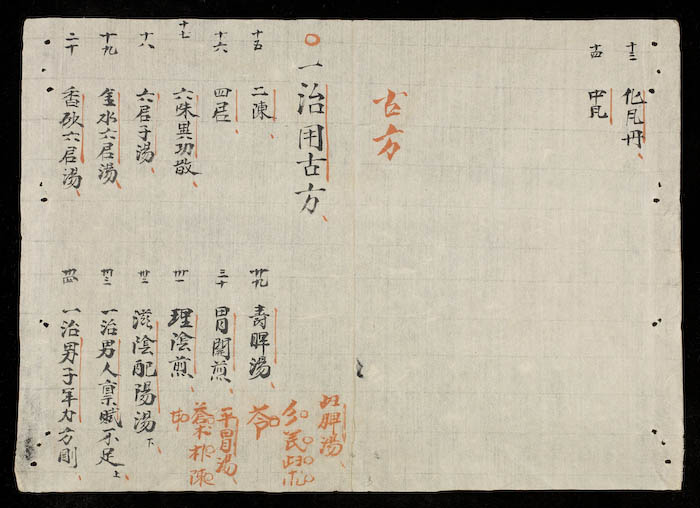 十三 化風丹
十四 中風
古方
一治用古方
十五 二陳
十六 四君
十七 六味異功散
十八 六君子湯
十九 金水六君湯
二十 香砂六君湯
脾湯
苓
平胃湯
蒼朮朴陳
廿九 壽脾湯
三十 胃關煎
卅一 理陰煎
卅二 滋陰配陽湯 下
卅三 一治男人稟賦不足 上
卅四 一治男子年力方剛